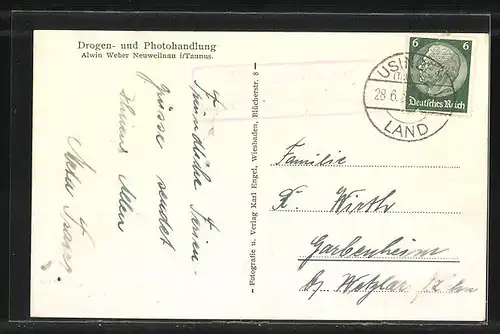 Drogen- und Photohandlung
Alwin Weber Neuweilnau i/Taunus.
Freundliche Ferien-
grüsse sendet
Allen
— Fotografie u. Verlag Karl Engel, Wiesbaden, Blücherstr. 8 —
6 6
Deutsches Reich
USINGEN
28.6.
LAND
Familie
K. Wirth
Garbenheim
b/ Wetzlar